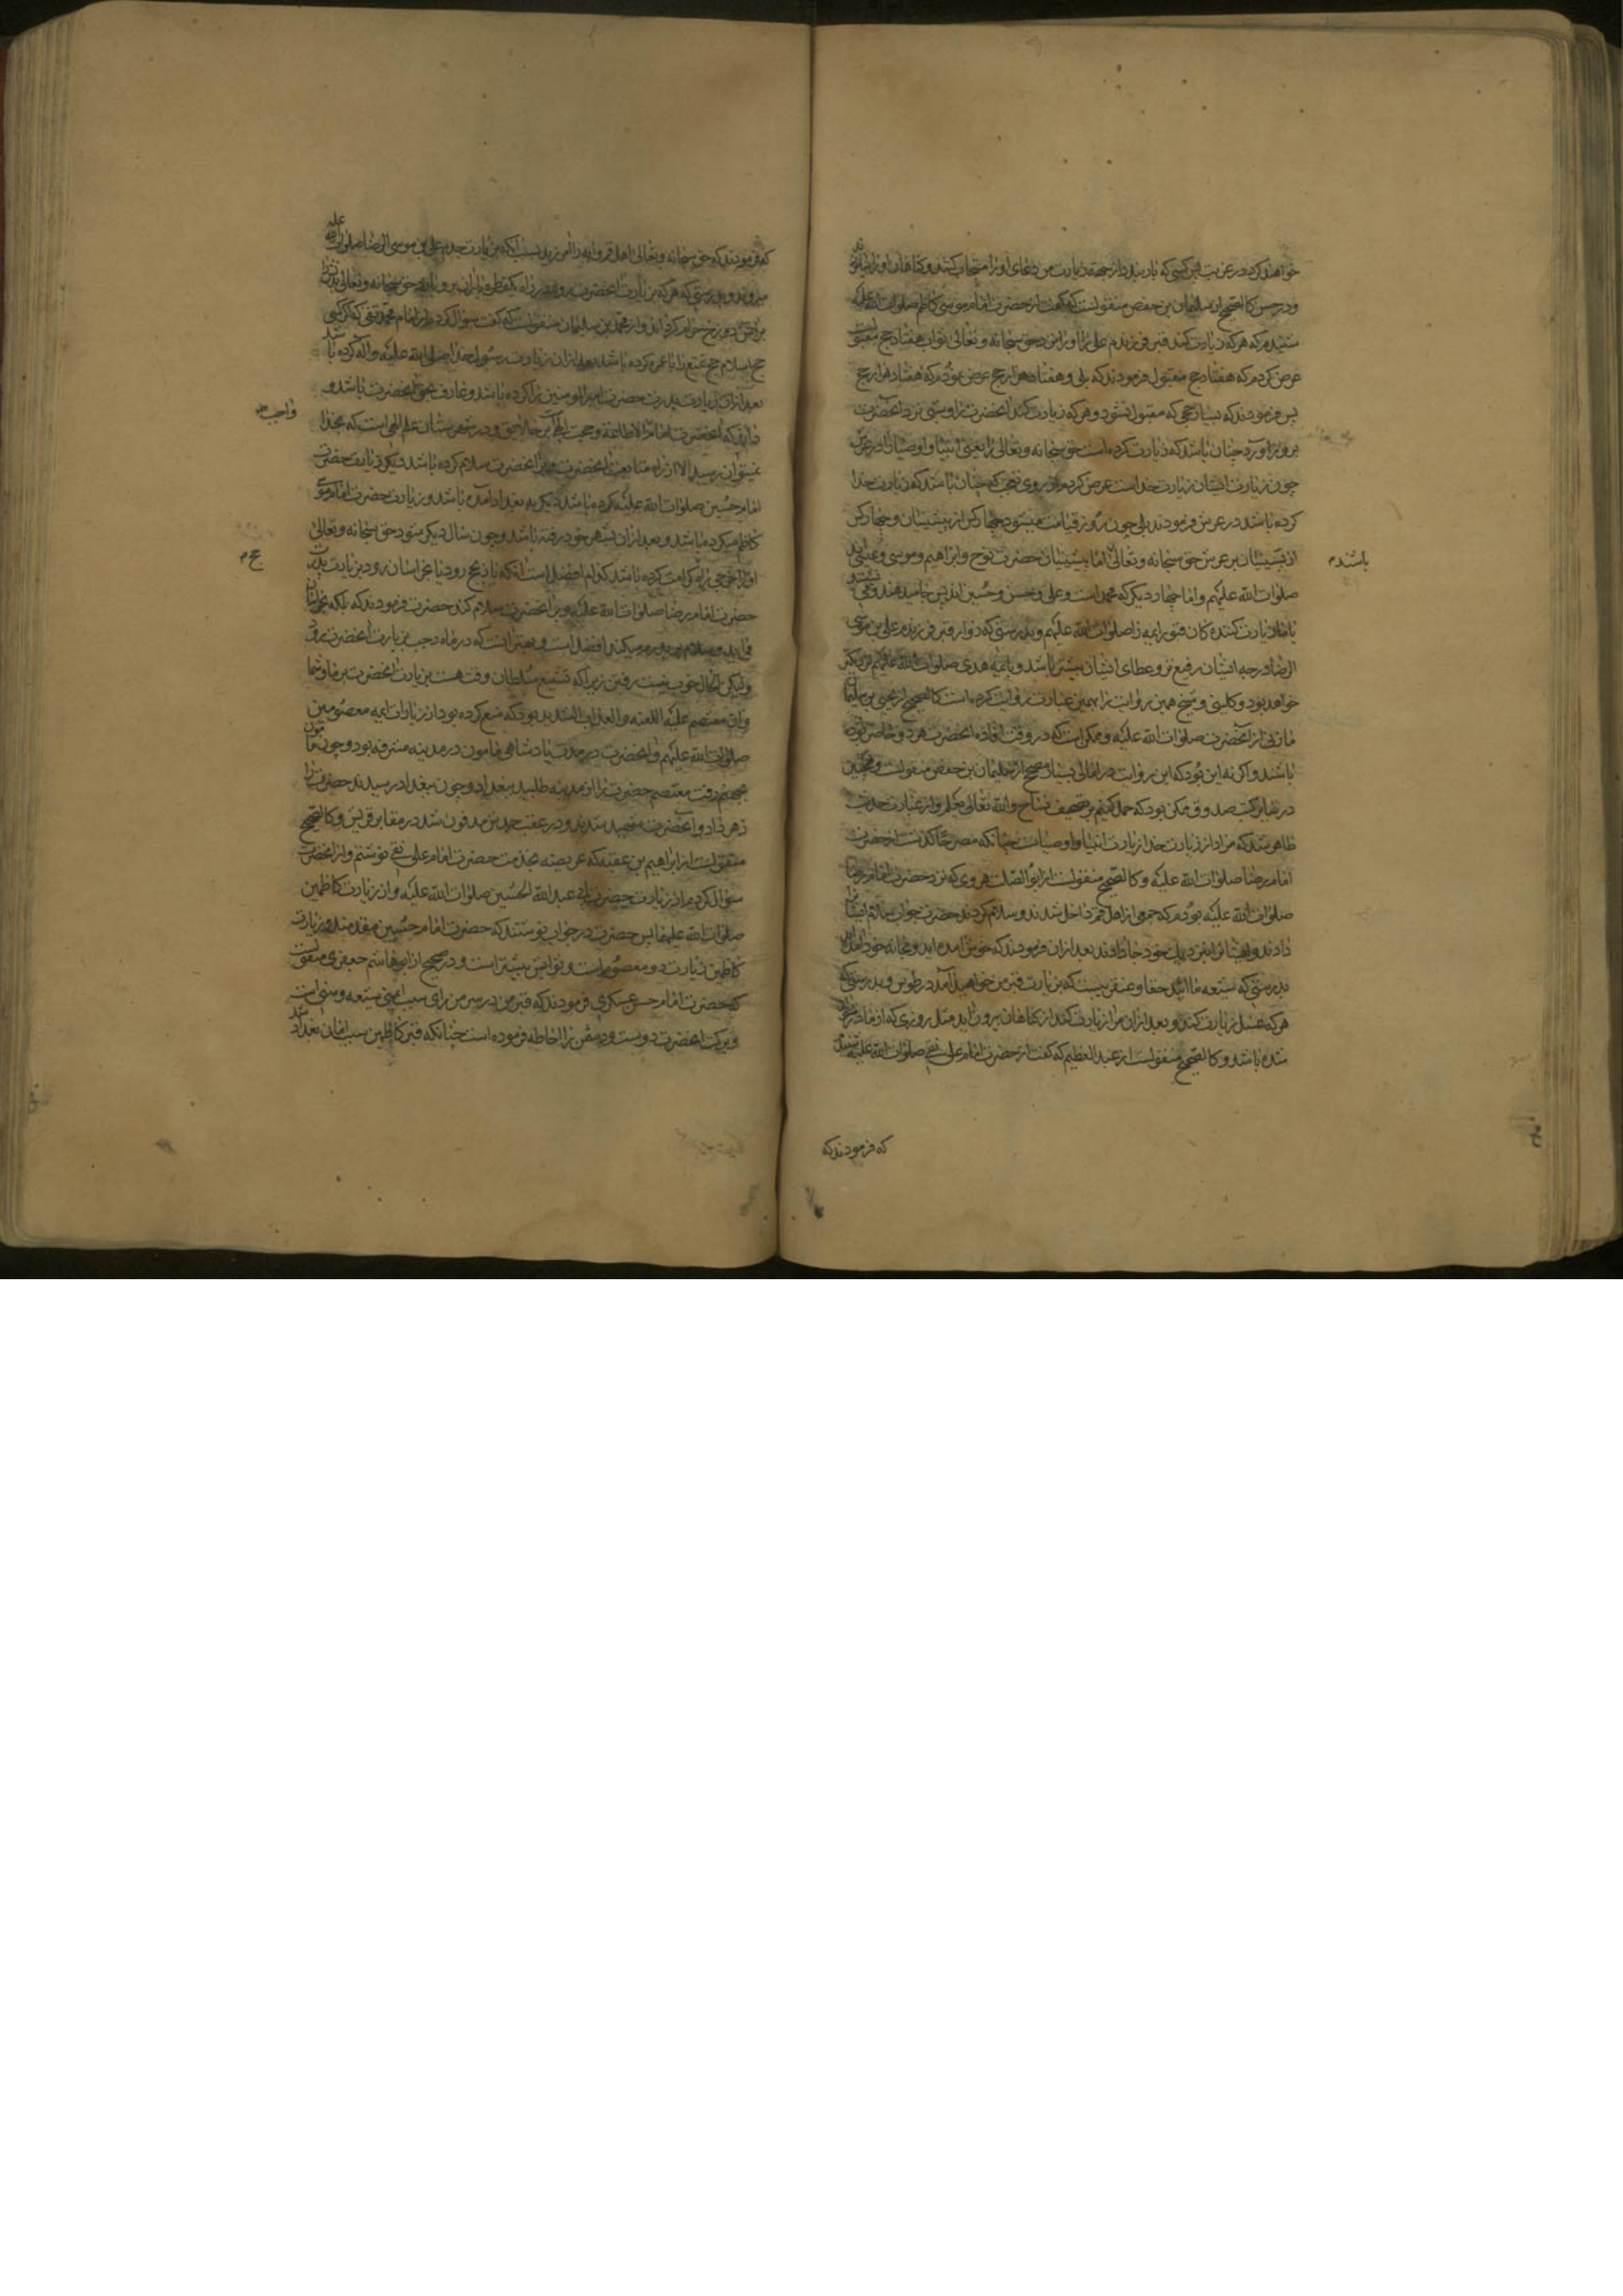 خواهند کرد در غربت پس کسی که بار بندد از جهة زیارت من دعای او را مستجاب کنند و گناهان او را بیامرزند
و در حسن کالصحیح از سلیمان بن حفص منقولست که گفت از حضرت امام موسی کاظم صلوات الله علیه
شنیدم که هر که زیارت کند قبر فرزندم علی را او را نزد حق سبحانه و تعالی ثواب هفتاد حج مقبولست
عرض کردم که هفتاد حج مقبول فرمودند که بلی و هفتاد هزار حج عرض نمودم که هفتاد هزار حج
پس فرمودند که بسیار حجی که مقبول نشود و هر که زیارت کند آنحضرت را و شبی نزد آنحضرت
بروز آورد چنان باشد که زیارت کرده است حق سبحانه و تعالی را یعنی انبیا و اوصیا را در عرش
چون زیارت ایشان زیارت خداست عرض کردم از روی تعجب که چنان باشد که زیارت خدا
کرده باشد در عرش فرمودند بلی چون روز قیامت میشود چهار کس از پیشینیان و چهار کس
از پسینیان بر عرش حق سبحانه و تعالی اما پیشینیان حضرت نوح و ابراهیم و موسی و عیسی اند
باشند م
صلوات الله علیهم و اما چهار دیگر که محمد است و علی و حسن و حسین اند پس جا میدهند و می نشینند
با ما زیارت کننده کان قبور ایمه را صلوات الله علیهم و بدرستی که زوار قبر فرزندم علی بن موسی
الرضا درجه ایشان رفیع تر و عطای ایشان بیشتر باشد و بایمه هدی صلوات الله علیهم نزدیکتر
خواهد بود و کلینی و شیخ همین روایت را بهمین عبارت روایت کرده است کالصحیح از یحیی بن سلیمان
مازنی از آنحضرت صلوات الله علیه و ممکن است که در وقت افاده آنحضرت هر دو حاضر بوده
باشند و اگر نه این بود که این روایت در امالی بسند صحیح از سلیمان بن حفص منقولست و همچنین
در سایر کتب صدوق ممکن بود که حمل کنیم بر تصحیف نساخ و الله تعالی یعلم و از عبارت حدیث
ظاهر شد که مراد از زیارت خدا زیارت انبیا و اوصیاست چنانکه مصرحا گذشت از حضرت
امام رضا صلوات الله علیه و کالصحیح منقولست از ابو الصلت هروی که نزد حضرت امام رضا
صلوات الله علیه بودم که جمعی از اهل قم داخل شدند و سلام کردند حضرت جواب سلام ایشان را
دادند و ایشان را نزدیک خود جا دادند بعد از آن فرمودند که خوش آمده اید و بخانه خود آمده اید
بدرستی که شیعه ما ایید حقا و عنقریبست که بزیارت قبر من خواهید آمد در طوس و بدرستی که
هر که غسل زیارت کند و بعد از آن مرا زیارت کند از گناهان بیرون آید مثل روزی که از مادر متولد
شده باشد و کالصحیح منقولست از عبد العظیم که گفت از حضرت امام علی نقی صلوات الله علیه شنیدم
که فرمودند که
که فرمودند که حق سبحانه و تعالی اهل قم و آبه را آمرزید بسبب آنکه بزیارت جدم علی بن موسی الرضا صلوات الله علیه
میروند و بدرستی که هر که بزیارت آنحضرت برود و در راه یکقطره باران برو آید حق سبحانه و تعالی بدن او را
بر آتش دوزخ حرام گرداند و از محمد بن سلیمان منقولست که گفت سؤال کردم از امام محمد تقی که اگر کسی
حج اسلام حج تمتع را با عمره کرده باشد بعد از آن زیارت رسول خدا صلی الله علیه و آله کرده باشد
بعد از آن زیارت پدرت حضرت امیر المومنین را کرده باشد و عارف بحق آنحضرت باشد و
داند که آنحضرت امام الاطاعة و حجت الهی بر خلایق و در شهرستان علم الهی است که بخدا
واجب م
نمیتوان رسید الا از راه متابعت آنحضرت و بر آنحضرت سلام کرده باشد دیگر زیارت حضرت
امام حسین صلوات الله علیه کرده باشد دیگر به بغداد آمده باشد و زیارت حضرت امام موسی
کاظم میکرده باشد و بعد از آن بشهر خود رفته باشد و چون سال دیگر شود حق سبحانه و تعالی
او را خرجی راه کرامت کرده باشد کدام افضل است آنکه باز بحج رود یا بخراسان رود بزیارت پدرت
حج م
حضرت امام رضا صلوات الله علیه و بر آنحضرت سلام کند حضرت فرمودند که بلکه بخراسان
می آید و سلام بر پدرم میکند افضل است و بهتر آنست که در ماه رجب بزیارت آنحضرت رود
و لیکن الحال خوب نیست رفتن زیرا که تشنیع سلطان وقت هست بزیارت آنحضرت بر ما و شما
و آن معتصم علیه اللعنه و العذاب الشدید بود که منع کرده بود از زیارات ایمه معصومین
صلوات الله علیهم و آنحضرت در مدت پادشاهی مامون در مدینه مشرفه بود و چون مامون
بجهنم رفت معتصم حضرت را از مدینه طلبید ببغداد و چون ببغداد رسیدند حضرت را
زهر داد و آنحضرت شهید شدند و در عقب جدش مدفون شد در مقابر قریش و کالصحیح
منقولست از ابراهیم بن عقبه که عریضه بخدمت حضرت امام علی نقی نوشتم و از آنحضرت
سؤال کردم از زیارت حضرت ابی عبد الله الحسین صلوات الله علیه و از زیارت کاظمین
صلوات الله علیهما پس حضرت در جواب نوشتند که حضرت امام حسین مقدمند و زیارت
کاظمین زیارت دو معصوم است و ثوابش بیشتر است و در صحیح از ابو هاشم جعفری منقولست
که حضرت امام حسن عسکری فرمودند که قبر من در سر من رای سبب ایمنی شیعه و سنی است
و برکت آنحضرت دوست و دشمن را احاطه فرموده است چنانکه قبر کاظمین سبب امان بغداد شد